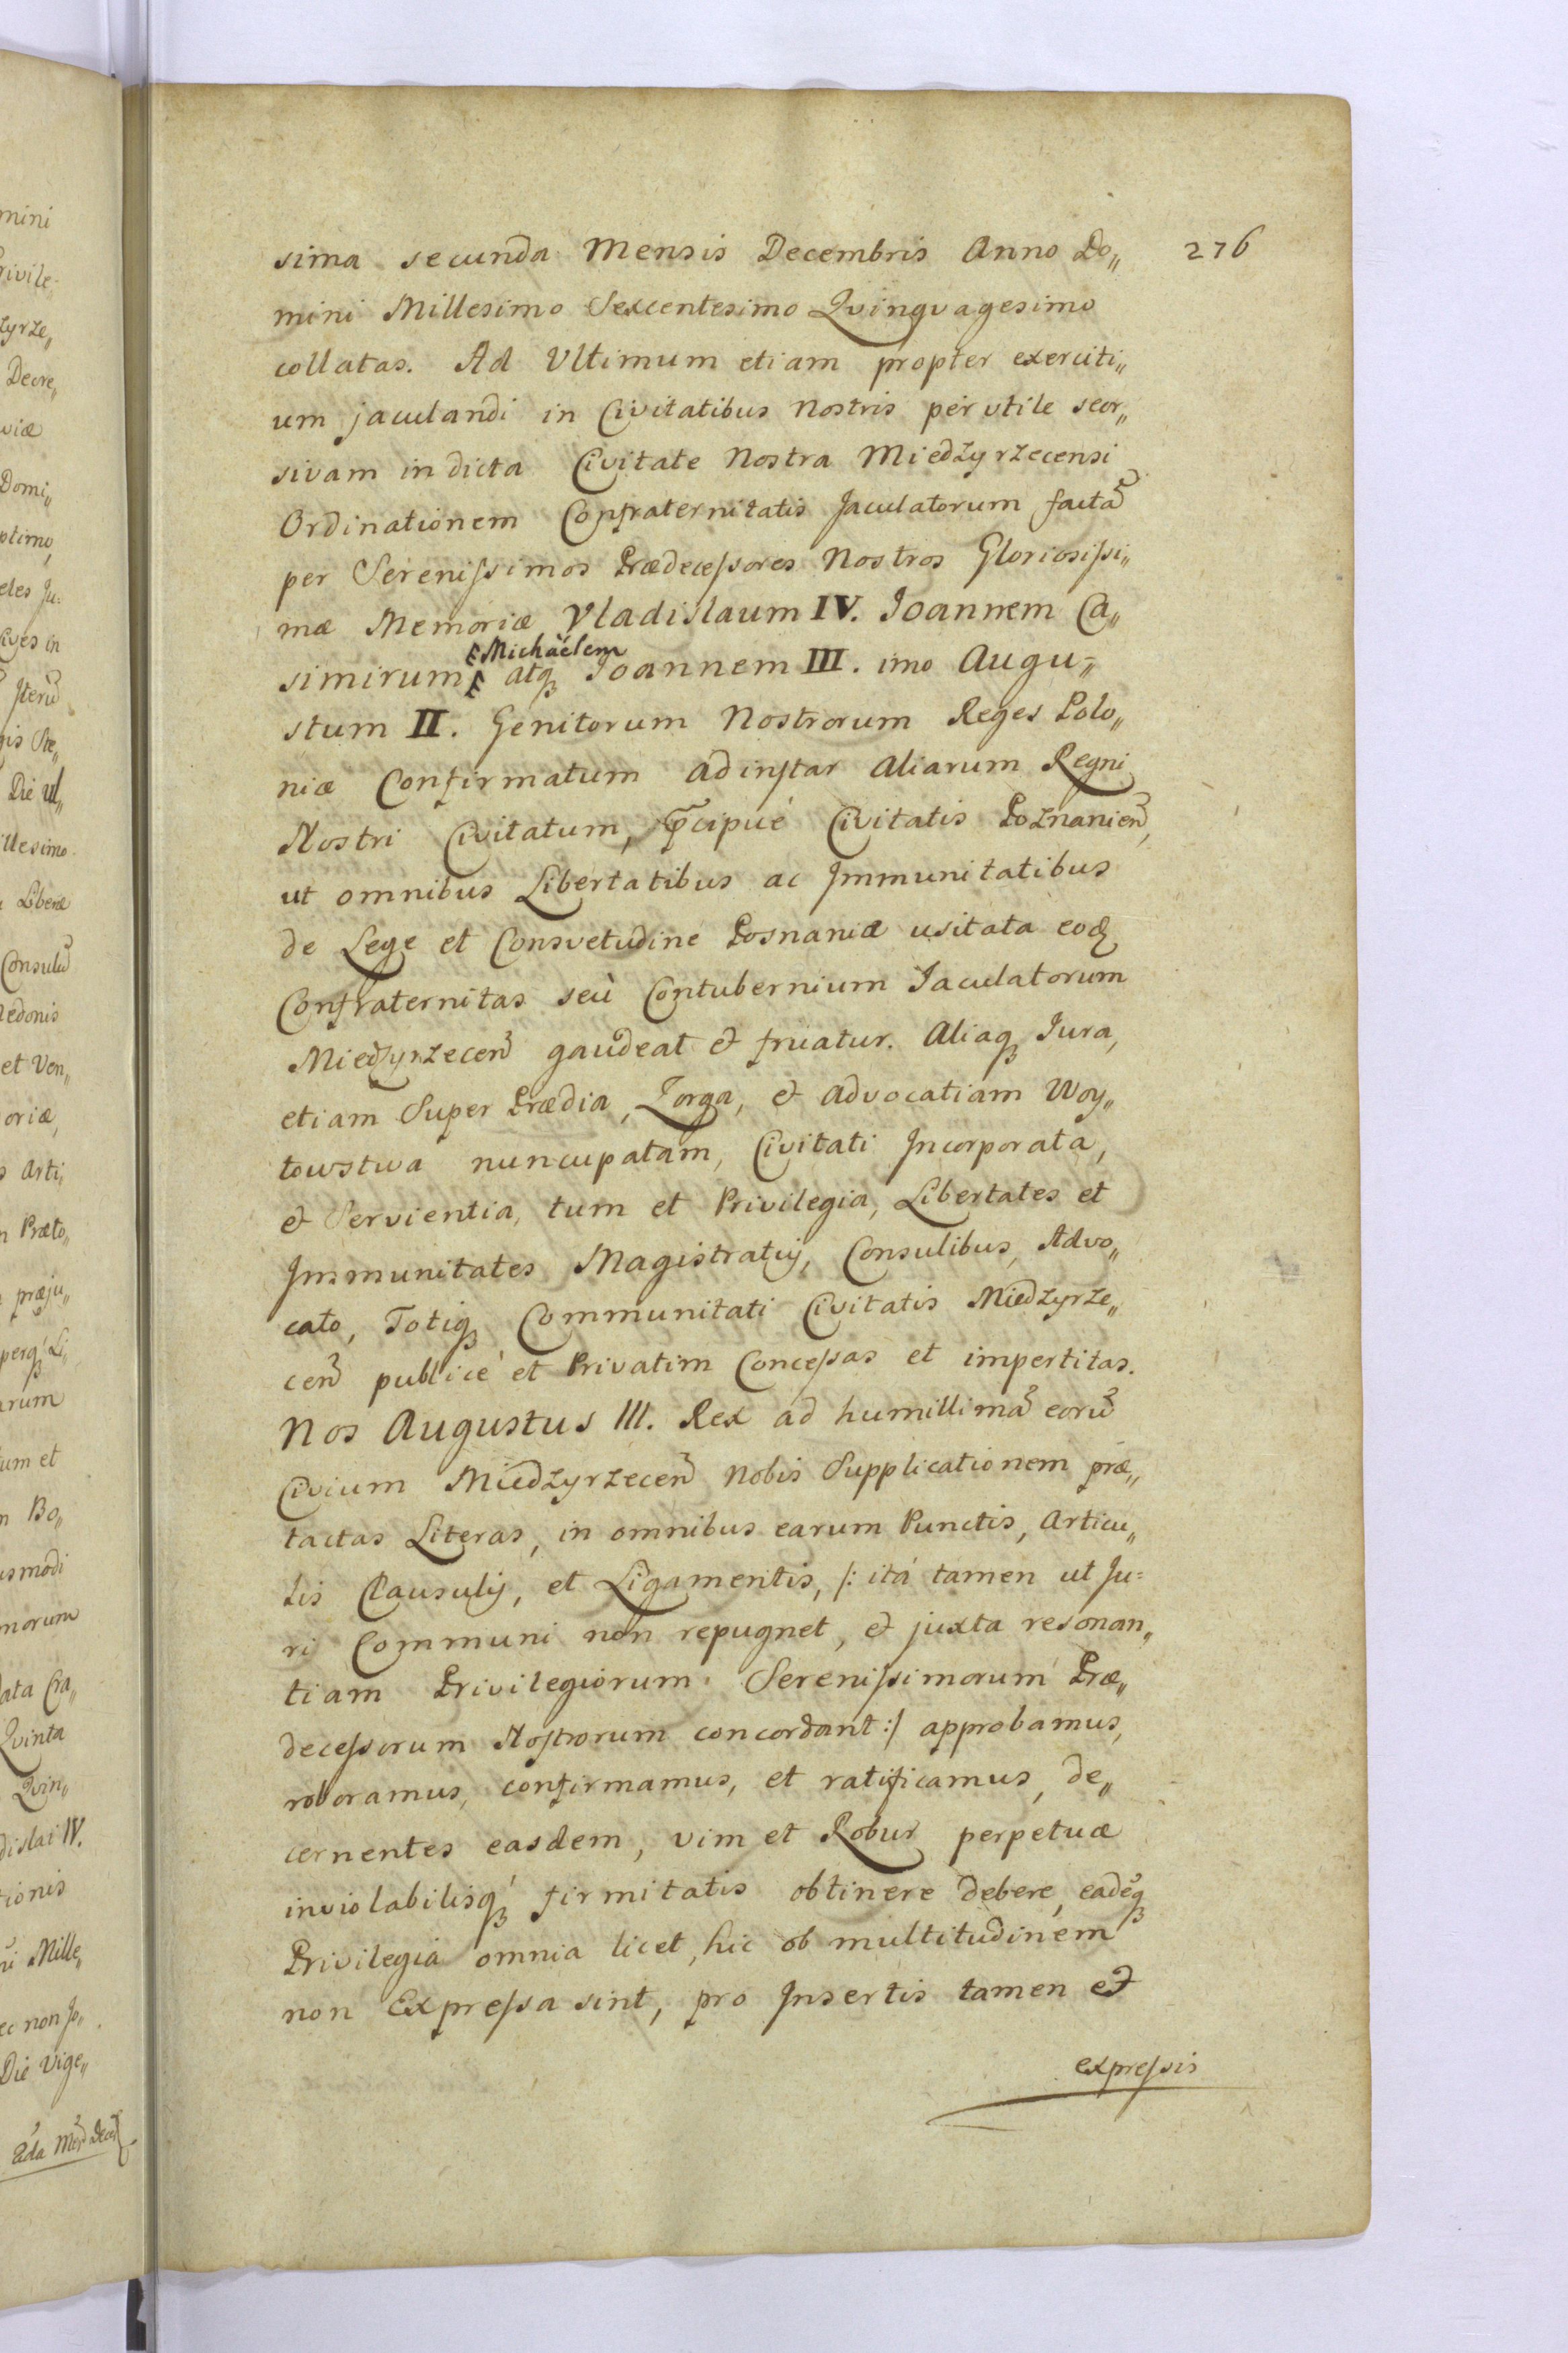 276
sima secunda Mensis Decembris Anno Do„
mini Millesimo Sexcentesimo Qvinqvagesimo
collatas. Ad Ultimum etiam propter exerciti„
um jaculandi in Civitatibus Nostris perutile seor„
sivam in dicta Civitate Nostra Miedzyrzecensi
Ordinationem Confraternitatis Jaculatorum factã
per Sereniſsimos Prædeceſsores Nostros Gloriosiſsi„
mæ Memoriæ Vladislaum IV. Joannem Ca„
Michaëlem
simirum atq Joannem III. imo Augu=
stum II. Genitorum Nostrorum Reges Polo„
niæ Confirmatum ad instar Aliarum Regni
Nostri Civitatum, p̃cipuè Civitatis Poznanien̄,
ut omnibus Libertatibus ac Immunitatibus
de Lege et Consvetudine Posnaniæ usitata eoq
Confraternitas seù Contubernium Jaculatorum
Miedzyrzecen̄ gaudeat & fruatur. Aliaq Jura,
etiam Super Prædia, Zorga, & Advocatiam Woy„
towstwa nuncupatam, Civitati Incorporata,
& Servientia, tum et Privilegia, Libertates et
Immunitates Magistratuj, Consulibus, Advo„
cato, Totiq Communitati Civitatis Miedzyrze„
cen̄ publicè et Privatim Conceſsas et impertitas.
Nos Augustus III. Rex ad humillimã eorũ
Civium Miedzyrzecen̄ Nobis Supplicationem præ„
tactas Literas, in omnibus earum Punctis, Articu„
lis Clausulij, et Ligamentis, /: ità tamen ut Ju=
ri Communi non repugnet, & juxta resonan„
tiam Privilegiorum Sereniſsimorum Præ„
deceſsorum Nostrorum concordant :/ approbamus,
roboramus, confirmamus, et ratificamus, de„
cernentes easdem, vim et Robur perpetuæ
inviolabilisq firmitatis obtinere debere, eadẽq
Privilegia omnia licet, hic ob multitudinem
non Expreſsa sint, pro Insertis tamen et
expreſsis